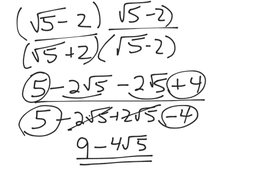 (√5-2) √5-2)
(√5+2)(√5-2)
5-2√5-2√5+4
5-2√5+2√5-4
9-4√5